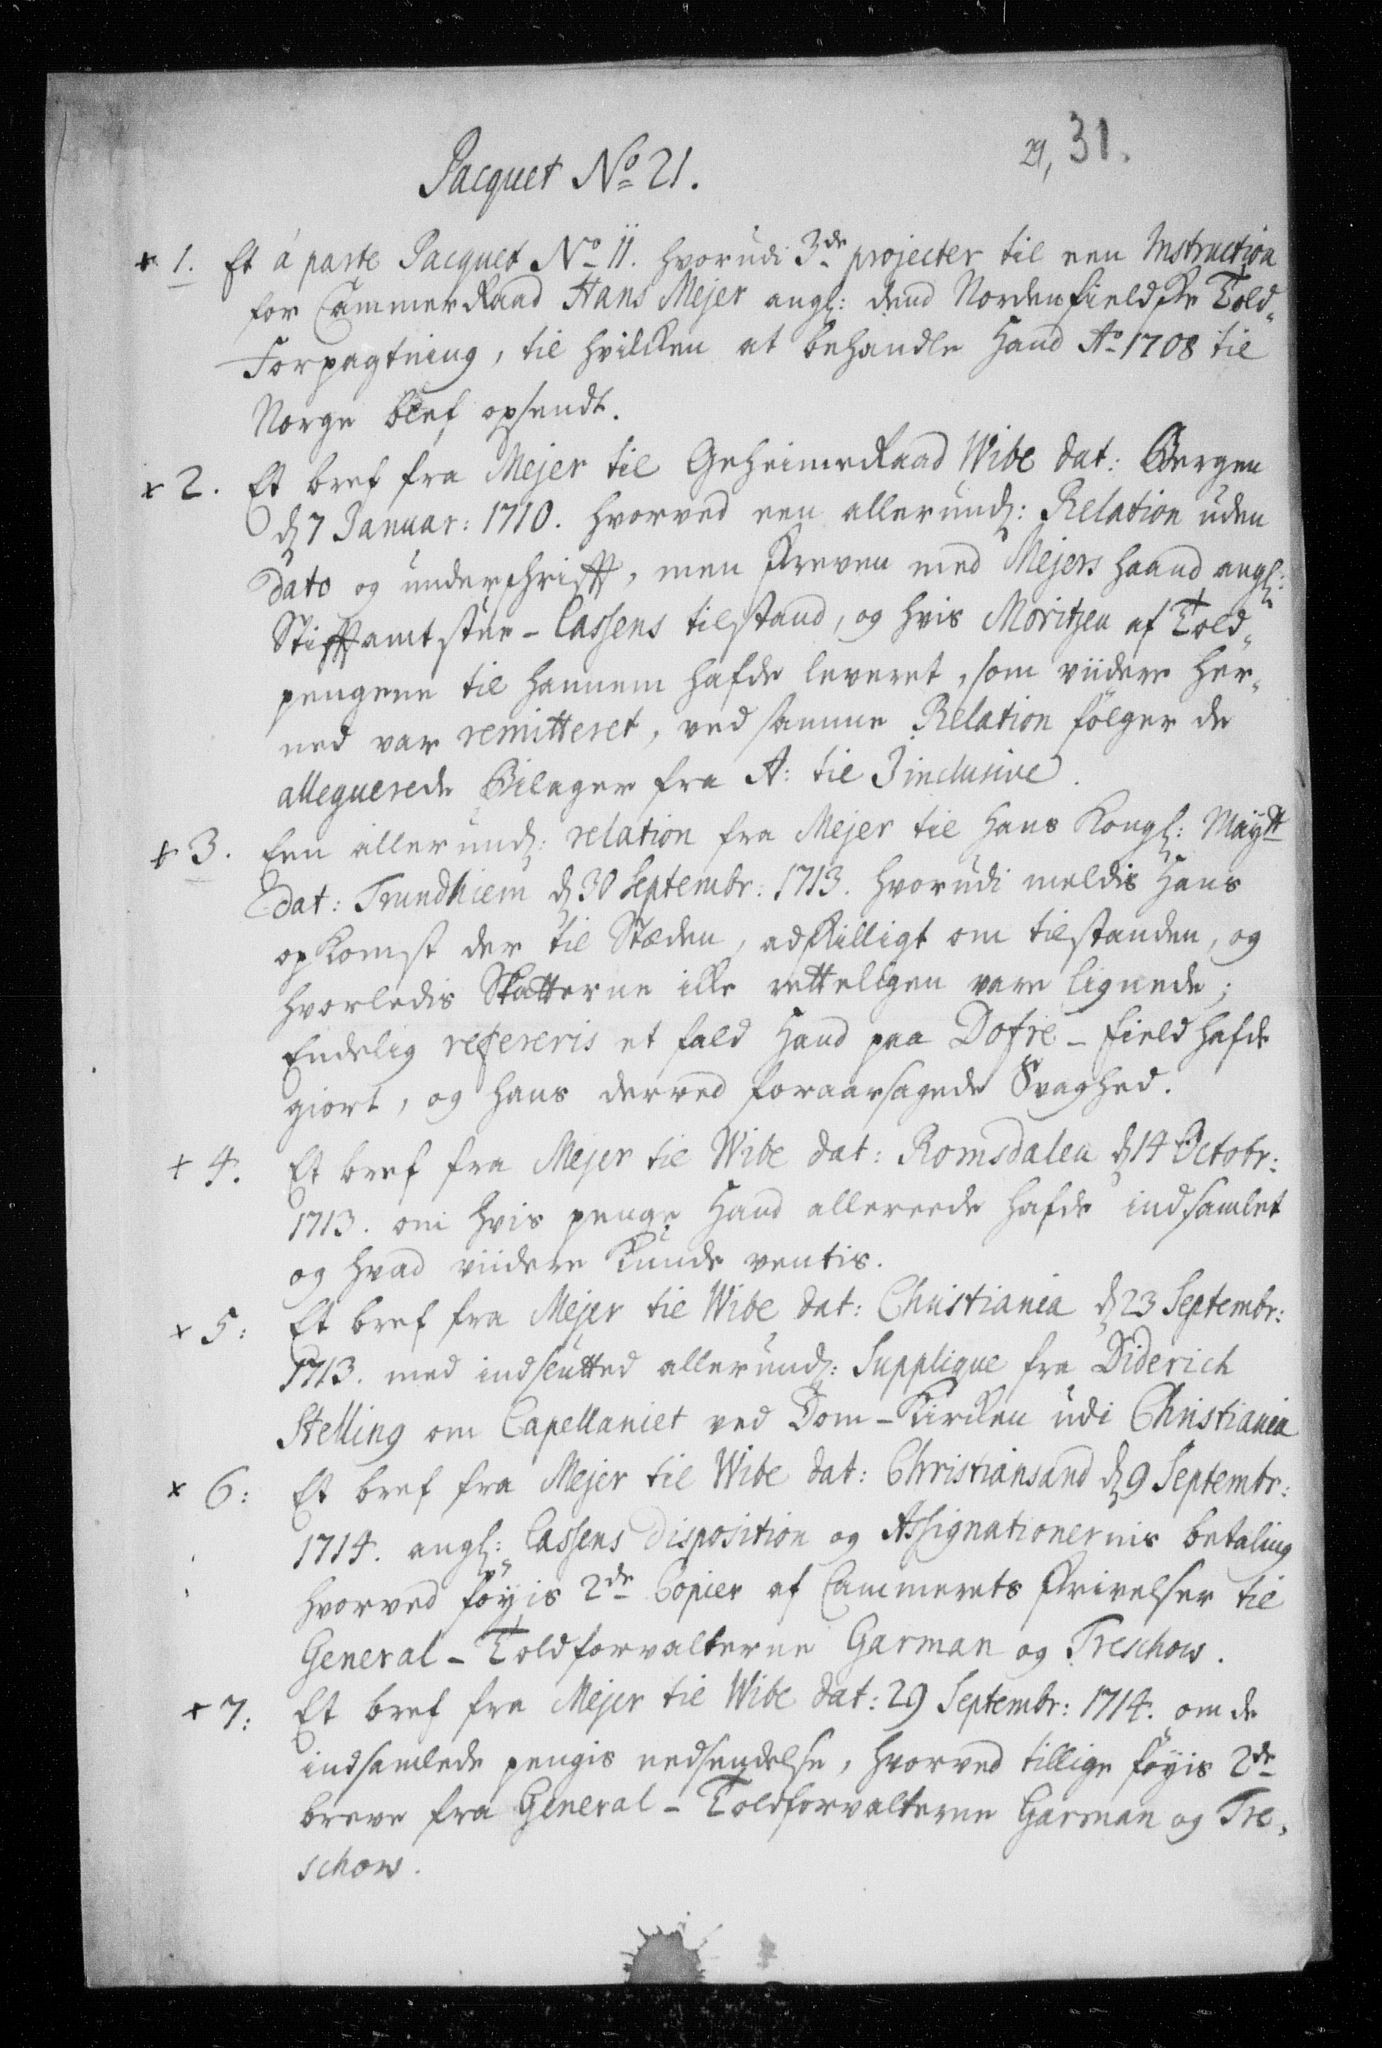 29, 31.
Pacquet No 21.
+ 1. Et á parte Pacquet No 11. hvorudi 3de projecter til een Instruction
for Cammer Raad Hans Mejer angl: dend Nordenfieldske Told-
Forpagtning, til hvilken at behandle hand Ao 1708 til
Norge blef opsendt.
+ 2. Et bref fra Mejer til Geheimeraad Wibe dat: Bergen
d 7 Januar: 1710. hvorved een allerund: Relation uden
dato og underschrifft, men skreven med Mejers haand angl:
Stifftamtstue-Cassens tilstand, og hvis Moritzen af Told-
pengene til hannem hafde leveret, som viidere her-
ned var remitteret, ved samme Relation følger de
alleguerede Bilager fra A: til J inclusive.
+ 3. Een allerund: relation fra Mejer til Hans Kongl: Maytt
dat: Trundhiem d 30 Septembr: 1713. hvorudi meldis Hans
opkomst der til Stæden, adskilligt om tilstanden, og
hvorledis Skatterne ikke retteligen vare lignede;
Endelig refereris et fald Hand paa Dofre-field hafde
giort, og hans derved foraarsagede Svaghed.
+ 4. Et bref fra Mejer til Wibe dat: Romsdalen d 14 Octobr:
1713. om hvis penge Hand allereede hafde indsamlet
og hvad viidere kunde ventis.
+ 5: Et bref fra Mejer til Wibe dat: Christiania d 23 Septembr:
1713. med indslutted allerund: Supplique fra Diderich
Stelling om Capellaniet ved Dom-Kirken udi Christiania
+ 6: Et bref fra Mejer til Wibe dat: Christiansand d 9 Septembr:
1714. angl: Cassens disposition og Assignationernis betaling
hvorved föyis 2de Copier af Cammerets skrivelser til
General-Toldforvalterne Garman og Treschow.
+ 7: Et bref fra Mejer til Wibe dat: 29 Septembr: 1714. om de
indsamlede pengis nedsendelse, hvorved tillige föyis 2de
breve fra General-Toldforvalterne Garman og Tre-
schow.